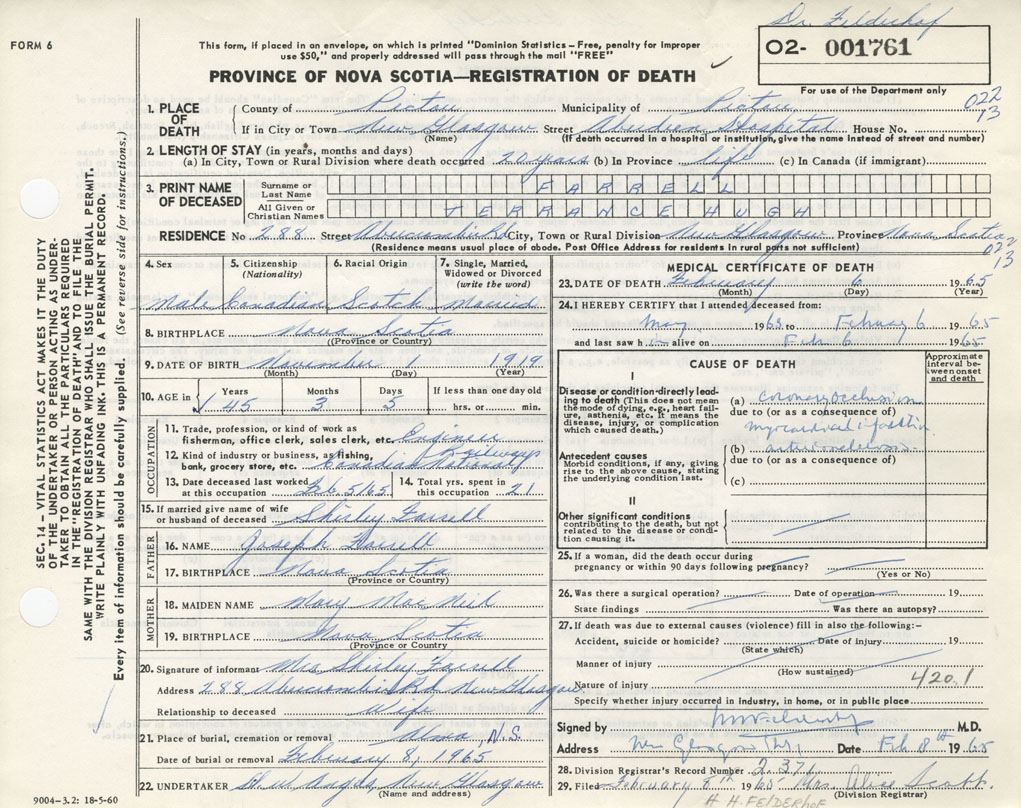 Dr. Felderhof
FORM 6
This form, if placed in an envelope, on which is printed "Dominion Statistics – Free, penalty for improper
use $50," and properly addressed will pass through the mail "FREE"
02- 001761
PROVINCE OF NOVA SCOTIA—REGISTRATION OF DEATH
For use of the Department only
022
13
1. PLACE OF DEATH
County of Pictou Municipality of Pictou
If in City or Town New Glasgow Street Aberdeen Hospital House No.
(Name) (If death occurred in a hospital or institution, give the name instead of street and number)
2. LENGTH OF STAY (in years, months and days)
(a) In City, Town or Rural Division where death occurred 20 years (b) In Province life (c) In Canada (if immigrant)
3. PRINT NAME OF DECEASED
Surname or Last Name FARRELL
All Given or Christian Names TERRANCE HUGH
RESIDENCE No 288 Street Abercombie Rd City, Town or Rural Division New Glasgow Province Nova Scotia
(Residence means usual place of abode. Post Office Address for residents in rural parts not sufficient)
022
13
4. Sex
Male
5. Citizenship
(Nationality)
Canadian
6. Racial Origin
Scotch
7. Single, Married,
Widowed or Divorced
(write the word)
Married
8. BIRTHPLACE Nova Scotia
(Province or Country)
9. DATE OF BIRTH November 1 1919
(Month) (Day) (Year)
10. AGE in
Years Months Days If less than one day old
45 3 5 hrs. or min.
OCCUPATION
11. Trade, profession, or kind of work as
fisherman, office clerk, sales clerk, etc.
12. Kind of industry or business, as fishing,
bank, grocery store, etc. Canadian National Railways
13. Date deceased last worked
at this occupation Feb 5/65
14. Total yrs. spent in
this occupation 21
15. If married give name of wife
or husband of deceased Shirley Farrell
FATHER
16. NAME Joseph Farrell
17. BIRTHPLACE Nova Scotia
(Province or Country)
MOTHER
18. MAIDEN NAME Mary MacNeil
19. BIRTHPLACE Nova Scotia
(Province or Country)
20. Signature of informant Mrs Shirley Farrell
Address 288 Abercombie Rd New Glasgow
Relationship to deceased Wife
21. Place of burial, cremation or removal Alma, N.S.
Date of burial or removal February 8, 1965
22. UNDERTAKER New Glasgow
(Name and address)
9004-3.2: 18-5-60
MEDICAL CERTIFICATE OF DEATH
23. DATE OF DEATH February 6 1965
(Month) (Day) (Year)
24. I HEREBY CERTIFY that I attended deceased from:
May 1963 to February 6 1965
and last saw him alive on Feb 6 1965
CAUSE OF DEATH
Approximate
interval be-
tween onset
and death
I
Disease or condition directly lead-
ing to death (This does not mean
the mode of dying, e.g., heart fail-
ure, asthenia, etc. It means the
disease, injury, or complication
which caused death.)
(a) coronary occlusion
due to (or as a consequence of)
myocardial infarction
Antecedent causes
Morbid conditions, if any, giving
rise to the above cause, stating
the underlying condition last.
(b) arteriosclerosis
due to (or as a consequence of)
(c)
II
Other significant conditions
contributing to the death, but not
related to the disease or condi-
tion causing it.
25. If a woman, did the death occur during
pregnancy or within 90 days following pregnancy?
(Yes or No)
26. Was there a surgical operation? Date of operation 19
State findings Was there an autopsy?
27. If death was due to external causes (violence) fill in also the following:-
Accident, suicide or homicide? Date of injury 19
(State which)
Manner of injury
(How sustained)
Nature of injury 420.1
Specify whether injury occurred in industry, in home, or in public place
Signed by M.D.
Address New Glasgow N.S. Date Feb 8th 1965
28. Division Registrar's Record Number 2371
29. Filed February 8th 1965 Mrs. Alice Scott
(Division Registrar)
H. H. FELDERHOF
SEC. 14 – VITAL STATISTICS ACT MAKES IT THE DUTY
OF THE UNDERTAKER OR PERSON ACTING AS UNDER-
TAKER TO OBTAIN ALL THE PARTICULARS REQUIRED
IN THE "REGISTRATION OF DEATH" AND TO FILE THE
SAME WITH THE DIVISION REGISTRAR WHO SHALL ISSUE THE BURIAL PERMIT.
WRITE PLAINLY WITH UNFADING INK. THIS IS A PERMANENT RECORD.
Every item of information should be carefully supplied. (See reverse side for instructions.)